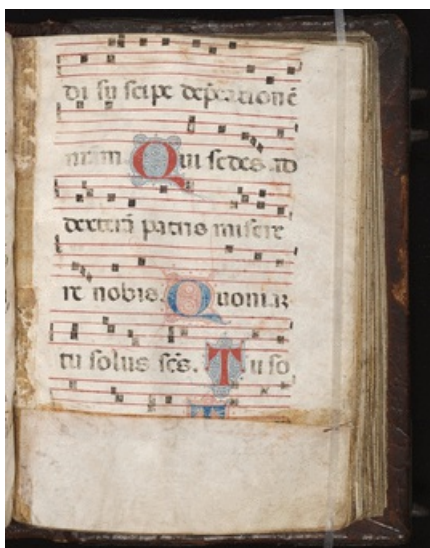 di suscipe deprecationē
nr̄am. Qui sedes ad
dexterā patris misere
re nobis. Quoniā
tu solus scs̄. Tu so